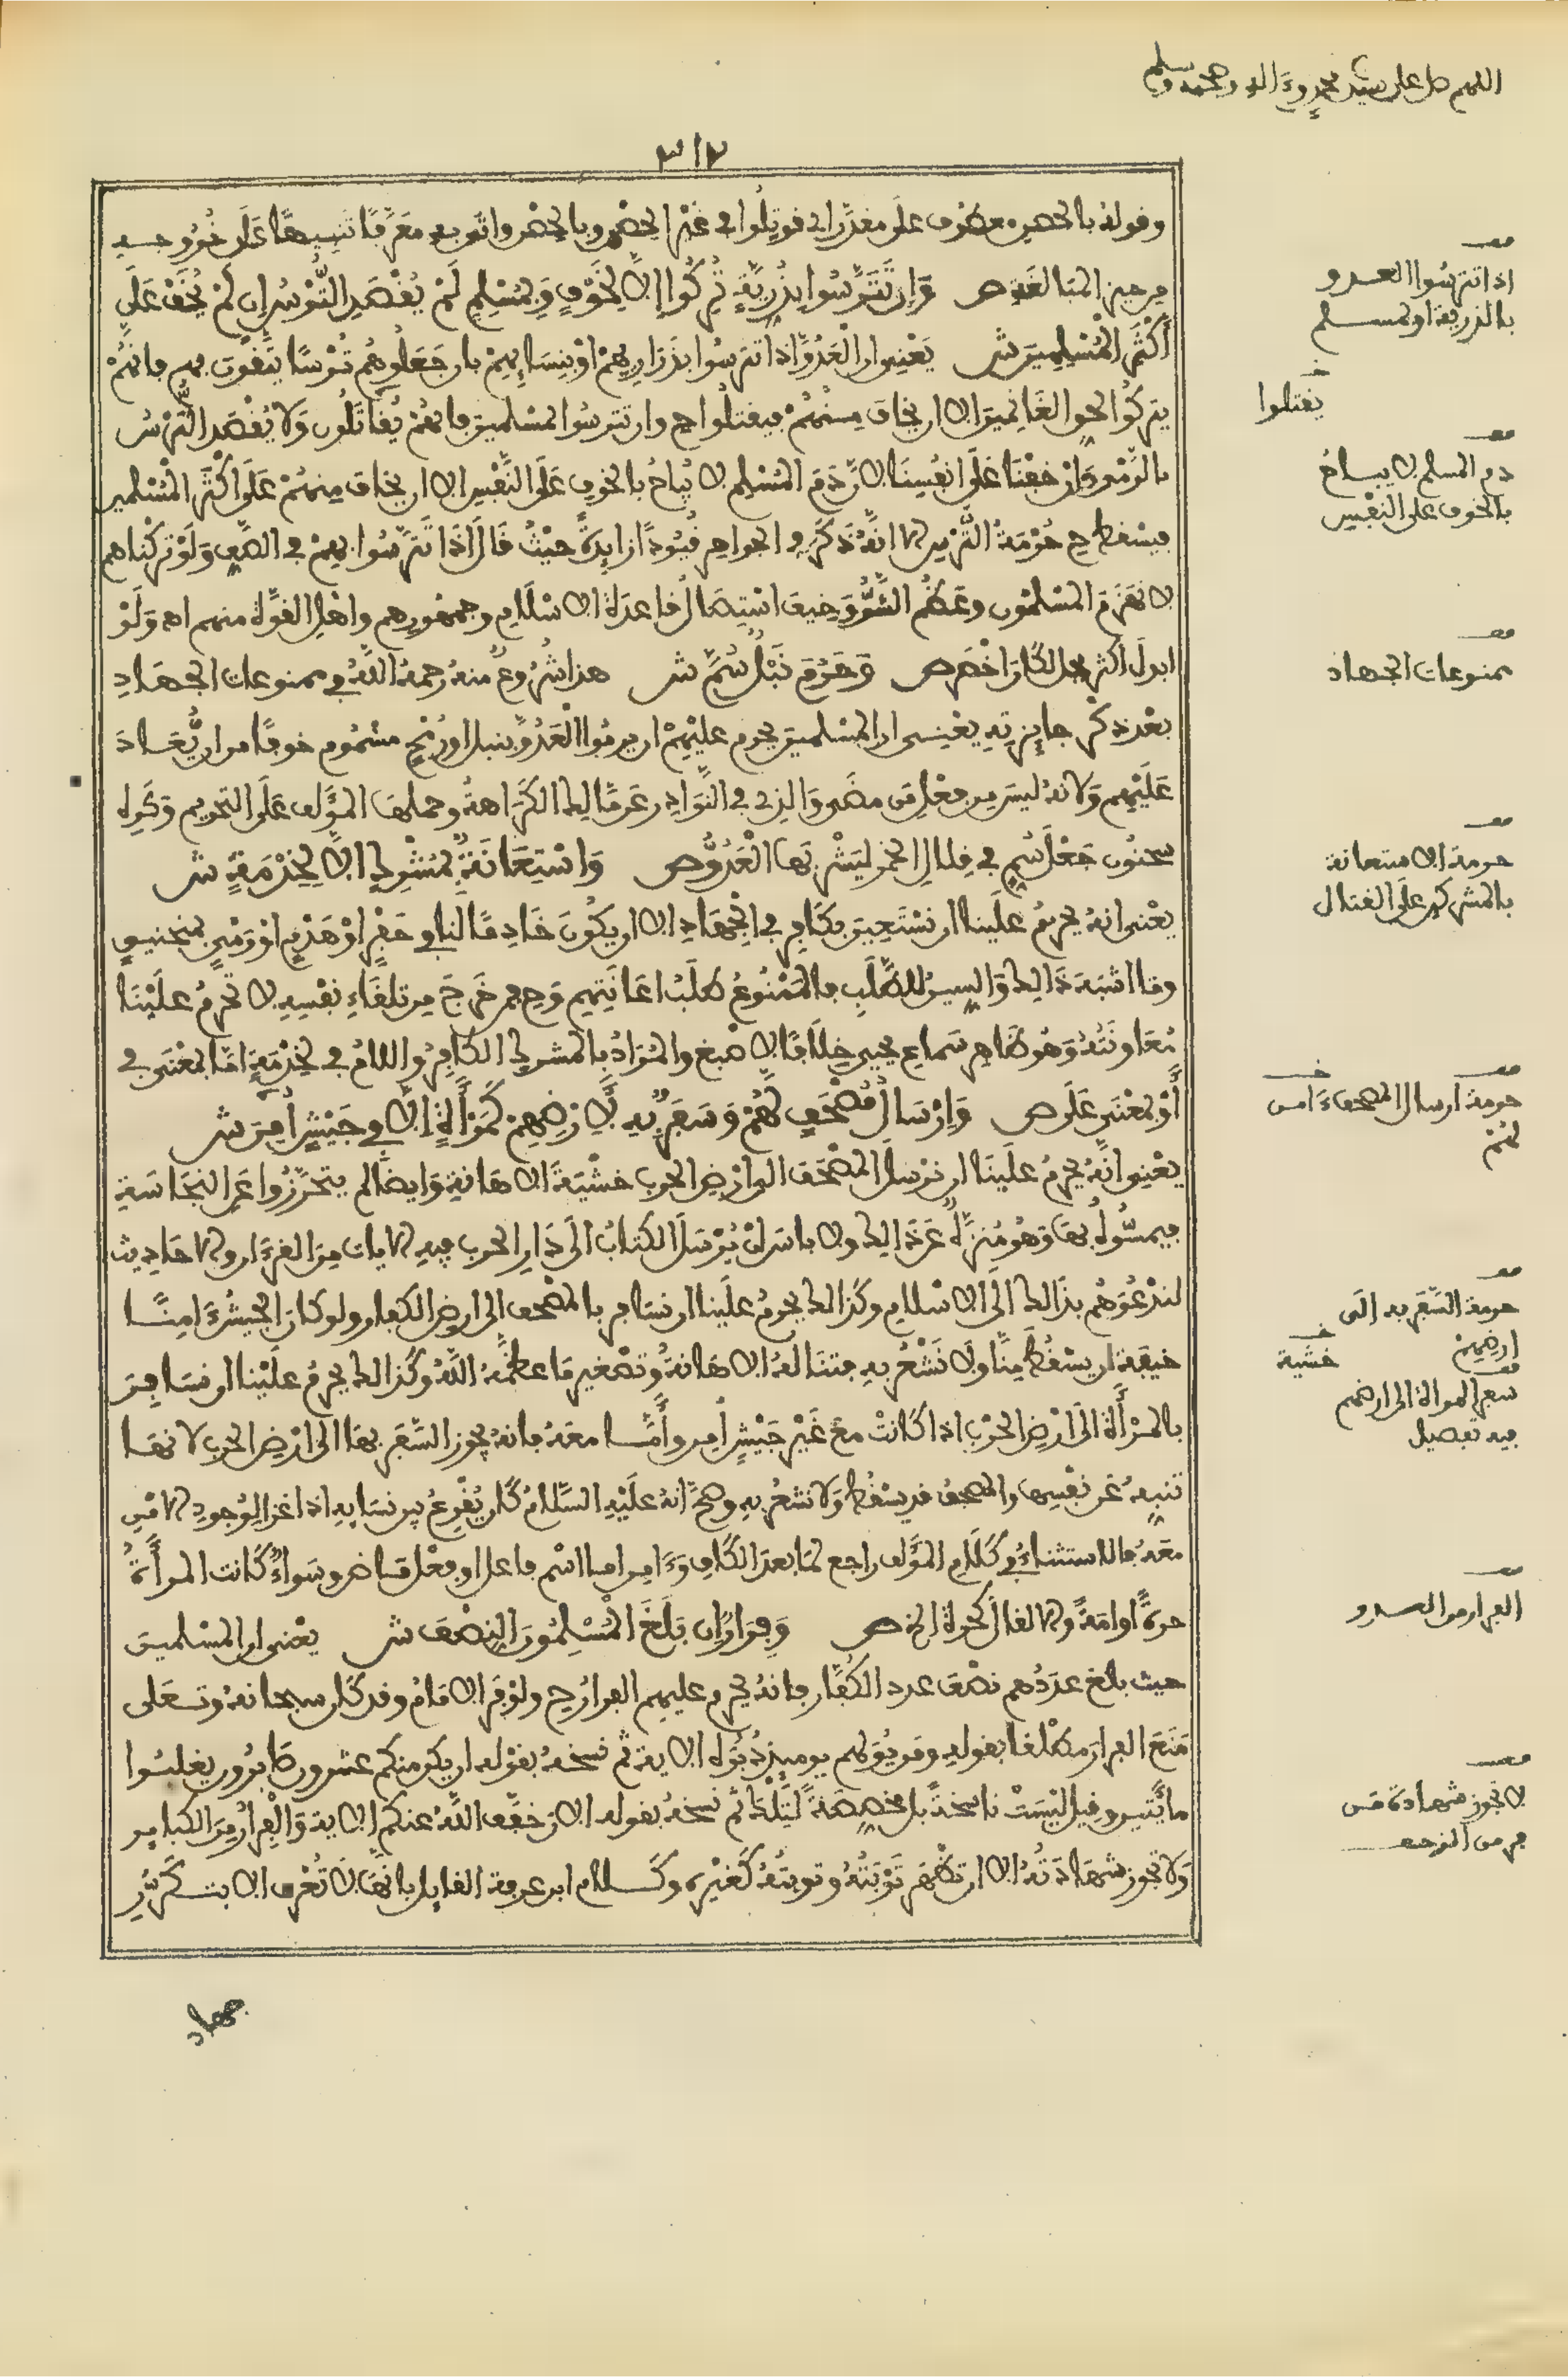 اللهم صل على سيدنا محمد وءاله وصحبه وسلم
٣١٧
وقوله بالحصن معطوف على مقدر اي قوتلوا في غير الحصن وبالحصن واتى به معرفا تنبيها على خروجه
من حيز المبالغة ص وَإِن تَتَرَّسُوا بِذُرِّيَّةٍ تُرِكُوا إِلَّا لِخَوْفٍ وَبِمُسْلِمٍ لَمْ يُقْصَدِ التُّرْسُ إِن لَمْ يُخَفْ عَلَى
أَكْثَرِ الْمُسْلِمِينَ ش يعني ان العدو اذا تترسوا بذراريهم او بنسايهم بان جعلوهم ترسا يتقون بهم فانهم
يتركوا لحق الغانمين الا ان يخاف منهم فيقتلوا ح وان تترسوا بالمسلمين فانهم يقاتلون ولا يقصد الترس
بالرمي وان خفنا على انفسنا لان دم المسلم لا يباح بالخوف على النفس الا ان يخاف منهم على اكثر المسلمين
فيسقط ح حرمة الترس الا انه ذكر في الجواهر قيودا زايدة حيث قال اذا تترسوا بهم في الصف ولو تركناهم
لانهزم المسلمون وعظم الشر وخيف استيصال قاعدة الاسلام وجمهورهم واهل القوة منهم اه ولو
ابدل اكثر بجل لكان اخصر ص وَحَرُمَ نَبْلٌ سُمَّ ش هذا شروع منه رحمه الله في ممنوعات الجهاد
بعد ذكر جايزته يعني ان المسلمين يحرم عليهم ان يرموا العدو بنبل او رمح مسموم خوفا من ان يعاد
عليهم ولانه ليس من فعل من مضى والذي في النوادر عن مالك الكراهة وحملها المؤلف على التحريم وكره
سحنون جعل سم في قلال الخمر ليشربها العدو ص وَاسْتِعَانَةٌ بِمُشْرِكٍ إِلَّا لِخِدْمَةٍ ش
يعني انه يحرم علينا ان نستعين بكافر في الجهاد الا ان يكون خادما لنا في حفر او هدم او رمي بمنجنيق
وما اشبه ذالك والسين للطلب فالممنوع طلب اعانتهم وح فمن خرج من تلقاء نفسه لا تحرم علينا
معاونته وهو ظاهر سماع يحيى خلافا لاصبغ والمراد بالمشرك الكافر واللام في لخدمة اما بمعنى في
او بمعنى على ص وَإِرْسَالُ مُصْحَفٍ لَهُمْ وَسَفَرٌ بِهِ لِأَرْضِهِمْ كَمَرْأَةٍ إِلَّا فِي جَيْشٍ أَمِنَ ش
يعني انه يحرم علينا ان نرسل المصحف الى ارض الحرب خشية الاهانة وايضا لم يتحرزوا عن النجاسة
فيمسوه بها وهو منزه عن ذالك ولا باس ان يرسل الكتاب الى دار الحرب فيه الايات من القرءان والاحاديث
لندعوهم بذالك الى الاسلام وكذالك يحرم علينا ان نسافر بالمصحف الى ارض الكفار ولو كان الجيش ءامنا
خيفة ان يسقط منا ولا نشعر به فتناله الاهانة وتصغير ما عظمه الله وكذالك يحرم علينا ان نسافر
بالمرأة الى ارض الحرب اذا كانت مع غير جيش أمن وأما معه فانه يجوز السفر بها الى ارض الحرب لانها
تنبه عن نفسها والمصحف قد يسقط ولا نشعر به وصح انه عليه السلام كان يقرع بين نسايه اذا غزا لوجود الامن
معه فالاستثناء في كلام المؤلف راجع لما بعد الكاف وءامن اما اسم فاعل او فعل ماض وسواء كانت المرأة
حرة او امة والا لقال كحرة الخ ص وَفِرَارٌ إِن بَلَغَ الْمُسْلِمُونَ النِّصْفَ ش يعني ان المسلمين
حيث بلغ عددهم نصف عدد الكفار فانه يحرم عليهم الفرار ح ولو فر الامام وقد كان سبحانه وتعلى
منع الفرار مطلقا بقوله ومن يولهم يوميذ دبره الاية ثم نسخه بقوله ان يكن منكم عشرون صابرون يغلبوا
مايتين وقيل ليست ناسخة بل مخصصة لتلك ثم نسخه بقوله الان خفف الله عنكم الاية والفرار من الكباير
ولا تجوز شهادته الا ان تظهر توبته وتوبته كغيره وكلام ابن عرفة القايل بانها لا تعرف الا بتكرر
جهاد
قف
اذا تترسوا العدو
بالذرية او المسلم
يقتلوا
قف
دم المسلم لا يباح
بالخوف على النفس
قف
ممنوعات الجهاد
قف
حرمة الاستعانة
بالمشركين على القتال
قف
حرمة ارسال المصحف ءامن
لهم
قف
حرمة السفر به الى
ارضهم خشية
قف
سفر المرأة الى ارضهم
فيه تفصيل
قف
الفرار من العدو
قف
لا تجوز شهادة من
فر من الزحف